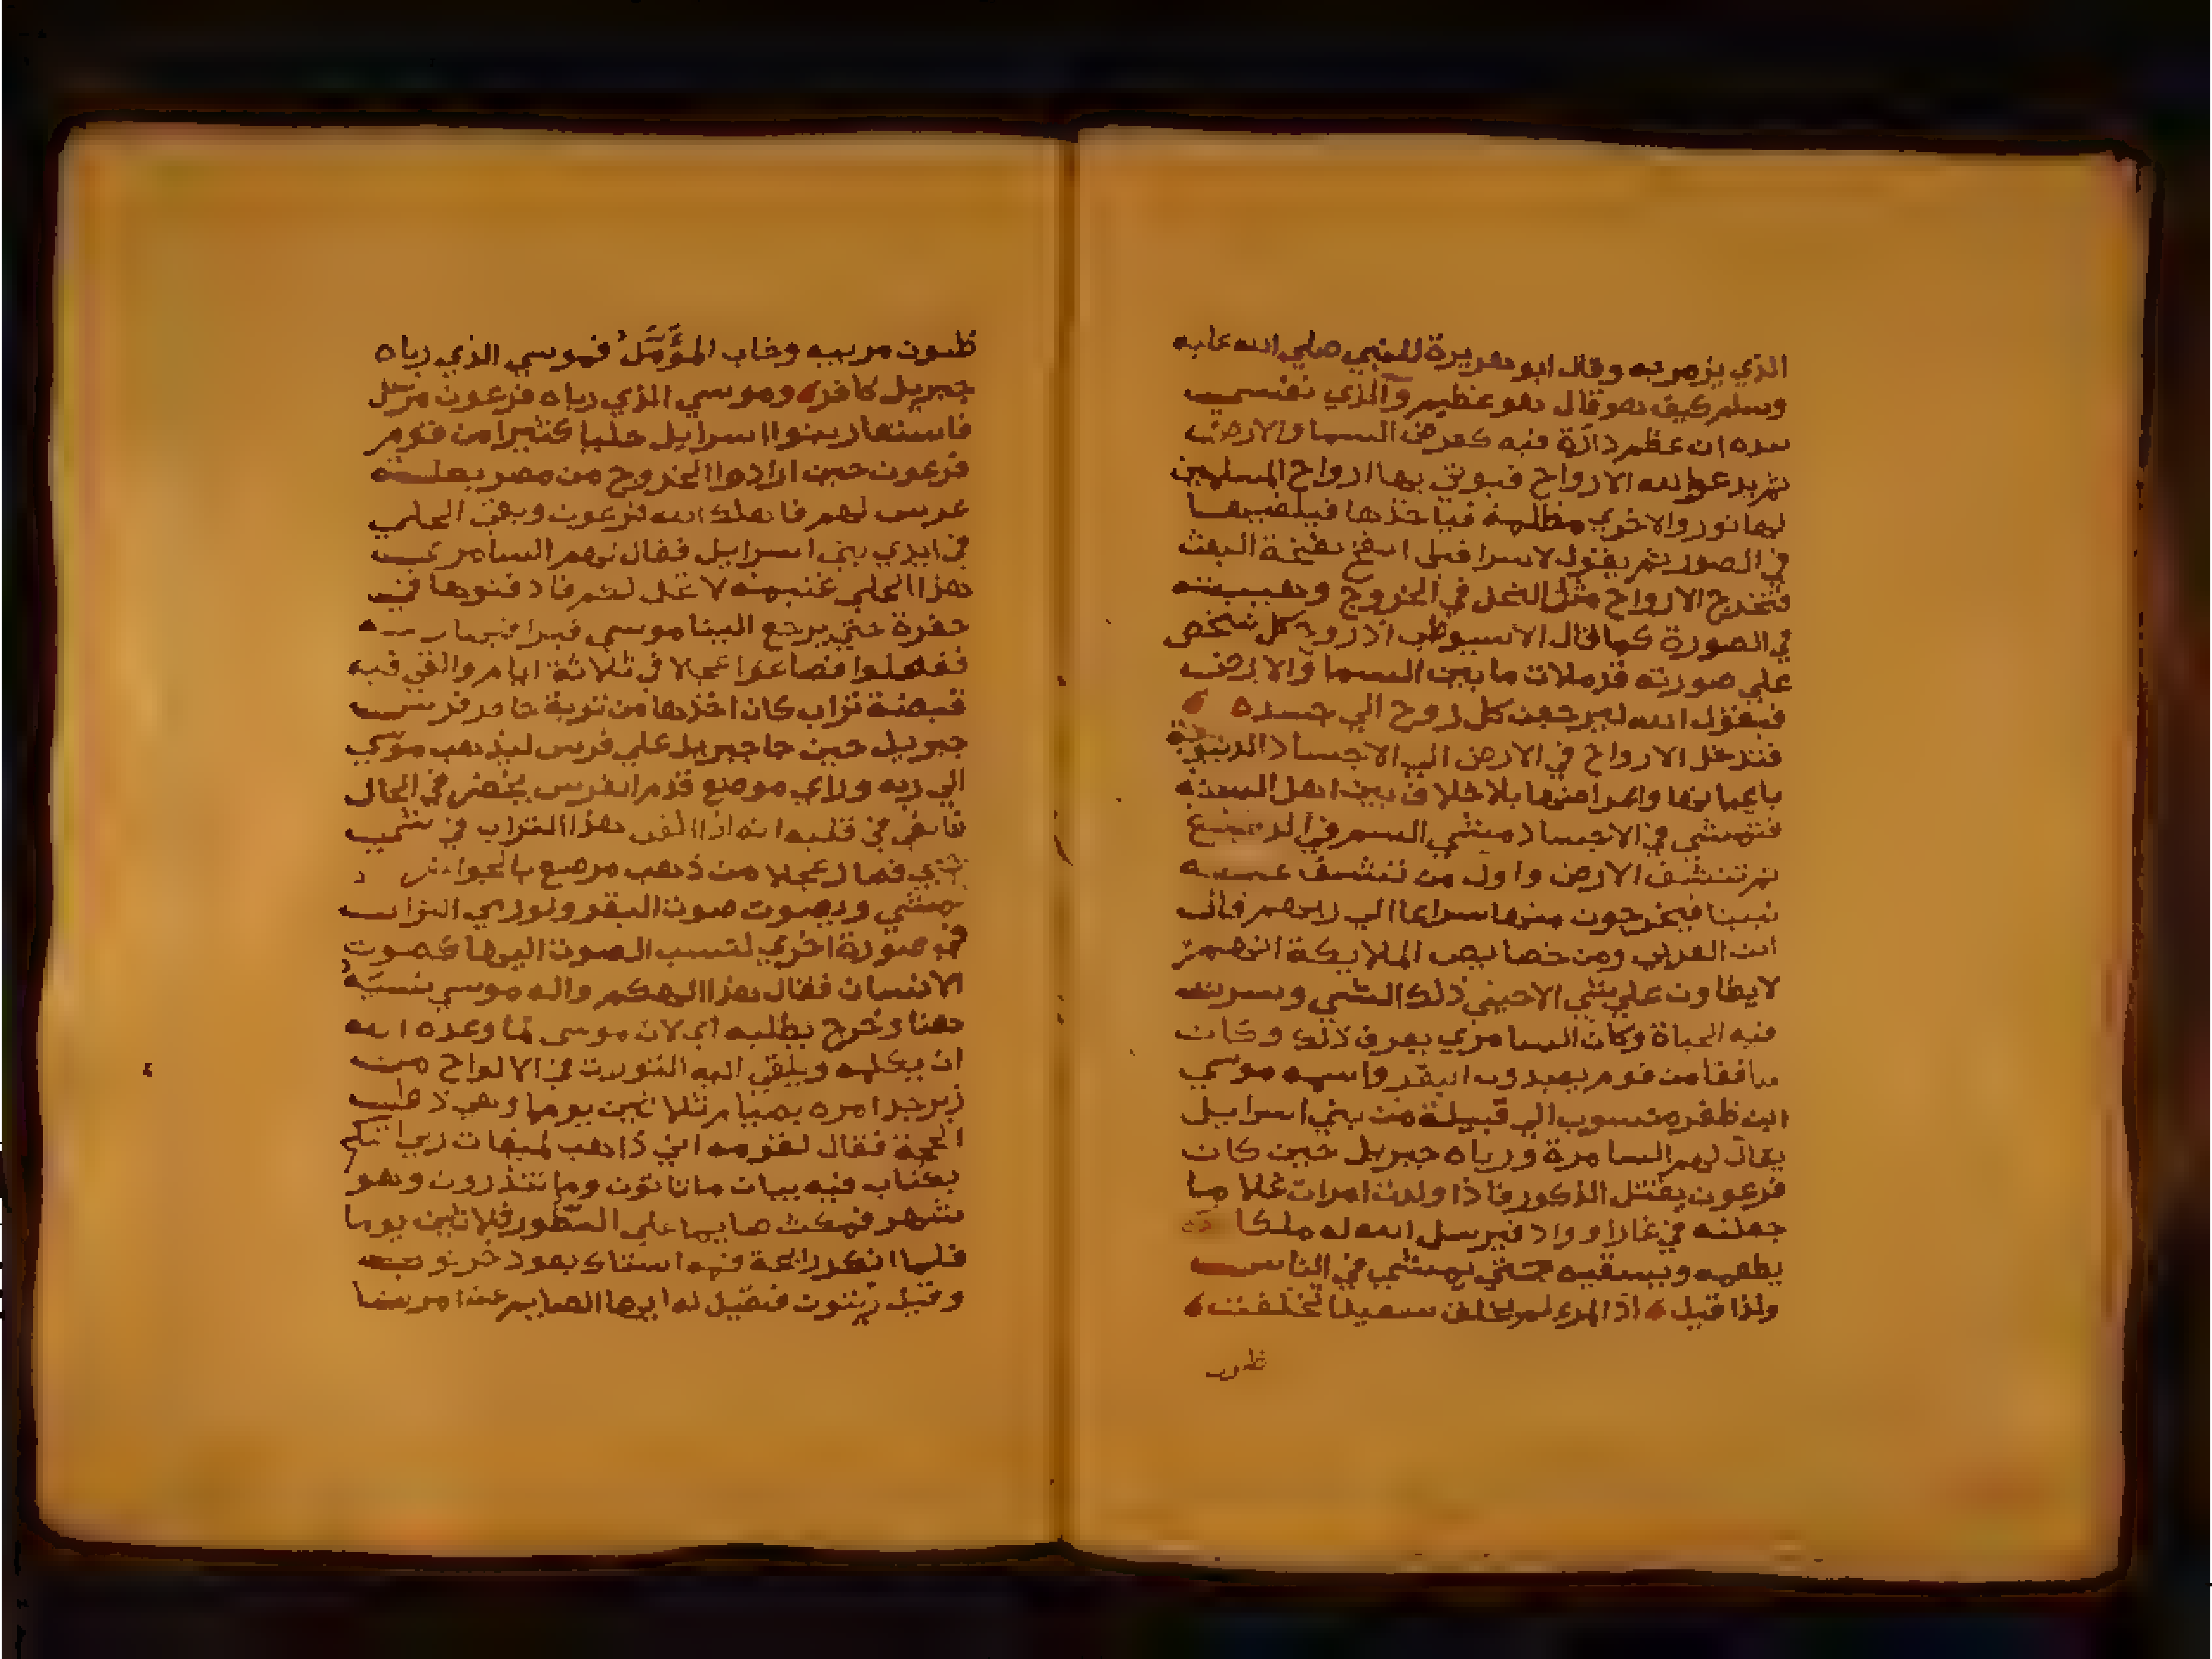 الذي يزمر به وقال ابو هريرة للنبي صلي الله عليه
وسلم كيف هو قال هو عظيم والذي نفسي
بيده ان عظم دارة فيه كعرض السما والارض
ثم يدعو الله الارواح فيوتي بها ارواح المسلمين
لها نور والاخري مظلمة فياخذها فيلقيها
في الصور ثم يقول لاسرافيل انفخ نفخة البعث
فتخرج الارواح مثل النحل في الخروج وهيبته
في الصورة كما قال الاسيوطي اذ روح كل شخص
علي صورته قد ملات ما بين السما والارض
فيقول الله ليرجعن كل روح الي جسده
فتدخل الارواح في الارض الي الاجساد الدنيوية
باعيانها واعراضها بلا خلاف بين اهل السنة
فتمشي في الاجساد مشي السم في اللديغ
ثم تنشق الارض واول من تنشق عنه
نبينا فيخرجون منها سراعا الي ربهم قال
ابن العربي ومن خصايص الملايكة انهم
لا يطاون علي شي الا حيي ذلك الشي وسرت
فيه الحياة وكان السامري يعرف ذلك وكان
منافقا من قوم يعبدون البقر واسمه موسي
ابن ظفر منسوب الي قبيلة من بني اسراييل
يقال لهم السامرة ورباه جبريل حين كان
فرعون يقتل الذكور فاذا ولدت امرات غلاما
جعلته في غار او واد فيرسل الله له ملكا
يطعمه ويسقيه حتي يمشي في الناس
ولذا قيل اذا المرء لم يخلق سعيدا تخلفت
ظنون
ظنون مربيه وخاب المؤمل فموسي الذي رباه
جبريل كافر وموسي الذي رباه فرعون مرسل
فاستعار بنوا اسراييل حليا كثيرا من قوم
فرعون حين ارادوا الخروج من مصر بعلة
عرس لهم فاهلك الله فرعون وبقي الحلي
في ايدي بني اسراييل فقال لهم السامري
هذا الحلي غنيمة لا تحل لكم فادفنوها في
حفرة حتي يرجع الينا موسي فيرا فيها
ففعلوا فصاغوا عجلا في ثلاثة ايام والقي فيه
قبضة تراب كان اخذها من تربة حافر فرس
جبريل حين جا جبريل علي فرس ليذهب موسي
الي ربه وراي موضع قدم الفرس يخضر في الحال
فالقي في قلبه انه اذا القي هذا التراب في شي
حيي فصار عجلا من ذهب مرصع بالجواهر
يمشي ويصوت صوت البقر ولو رمي التراب
في صورة اخري لنسب الصوت اليها كصوت
الانسان فقال هذا الهكم واله موسي نسيه
هنا وخرج يطلبه اي لان موسي لما وعده الله
ان يكلمه ويلقي اليه التورات في الالواح من
زبرجد امره بصيام ثلاثين يوما وهي ذ
الحجة فقال لقومه اني ذاهب لميقات ربي اتيكم
بكتاب فيه بيان ما تاتون وما تتذرون وهو
شهر فمكث صايما علي الطور ثلاثين يوما
فلما انكر رايحة فمه استاك بعود خرنوب
وقيل زيتون فقيل له ايها الصايم عن امرنا